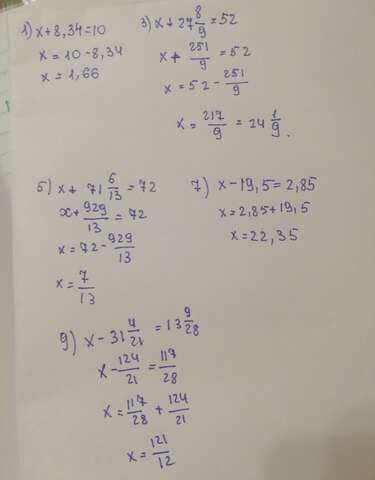 1) x+8,34=10
x=10-8,34
x=1,66
3) x+27 8/9=52
x+ 251/9 =52
x=52- 251/9
x= 217/9 = 24 1/9.
5) x+ 71 6/13 =72
x+ 929/13 =72
x=72- 929/13
x= 7/13
7) x-19,5=2,85
x=2,85+19,5
x=22,35
9) x-31 4/21 =13 9/28
x- 124/21 = 117/28
x= 117/28 + 124/21
x= 121/12